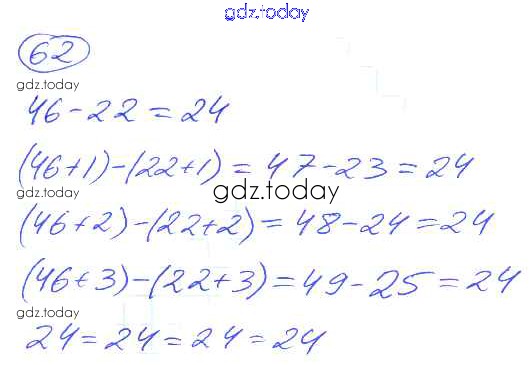 gdz.today
62
gdz.today
46-22=24
(46+1)-(22+1)=47-23=24
gdz.today
(46+2)-(22+2)=48-24=24
(46+3)-(22+3)=49-25=24
24=24=24=24